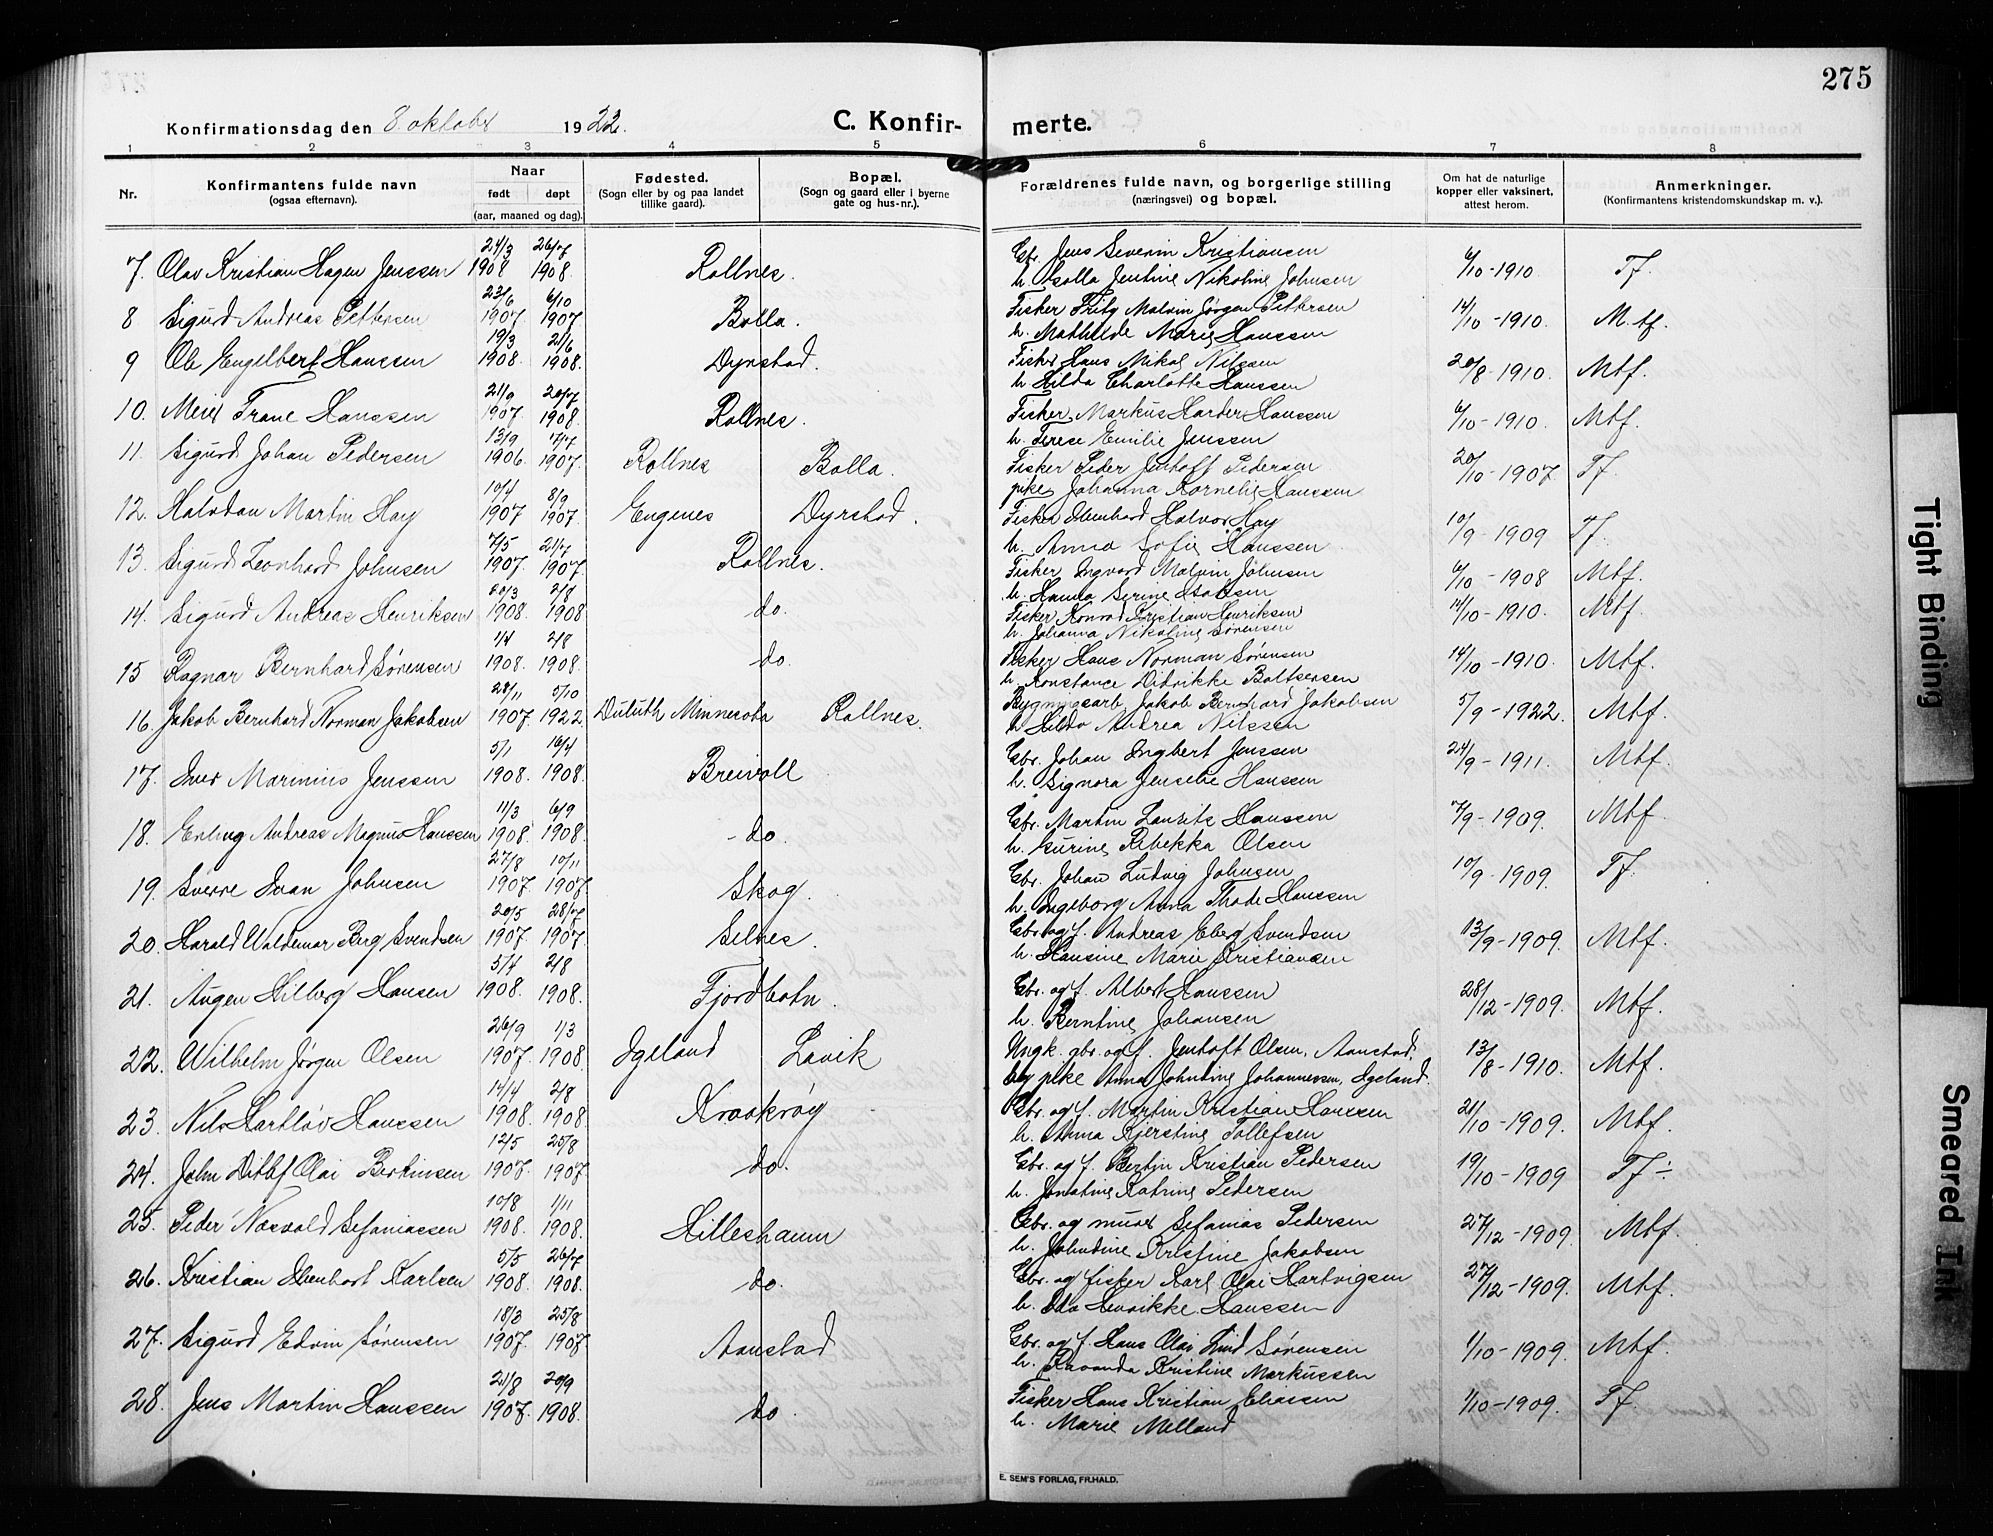 275
Konfirmationsdag den 8 oktober 1922.
C. Konfirmerte.
1 2 3 4 5 6 7 8
Nr.
Konfirmantens fulde navn
(ogsaa efternavn).
Naar
født døpt
(aar, maaned og dag).
Fødested.
(Sogn eller by og paa landet
tillike gaard).
Bopæl.
(Sogn og gaard eller i byerne
gate og hus-nr.).
Forældrenes fulde navn, og borgerlige stilling
(næringsvei) og bopæl.
Om hat de naturlige
kopper eller vaksinert,
attest herom.
Anmerkninger.
(Konfirmantens kristendomskundskap m. v.).
7. Olav Kristian Hagen Jenssen 24/3 1908 26/7 1908. Rollnes. Gbr. Jens Severin Kristiansen 6/10-1910. Tf.
h. Isolla Jentine Nikoline Johnsen
8 Sigurd Andreas Pettersen 23/6 1907. 6/10 1907 Bolla. Fisker Fritz Malvin Jørgen Pettersen 14/10-1910. M.tf.
h. Mathilde Marie Hanssen
9 Ole Engelbert Hanssen 19/3 1908. 21/6 1908. Dyrstad. Fisker Hans Mikal Nilssen 20/8-1910. Mtf.
h Hilda Charlotte Hanssen
10. Meier Trane Hanssen 21/9 1907 20/7 1908. Rollnes. Fisker Markus Harder Hanssen 6/10-1910. Mtf.
h. Terese Emilie Jenssen
11. Sigurd Johan Pedersen 13/9 1906 7/7 1907. Rollnes Bolla. Fisker Peder Jentoft Pedersen 20/10-1907. Tf.
pike Johanna Kornelie Hanssen
12. Halvdan Martin Hay 10/4 1907 8/9 1907. Engenes Dyrstad. Fisker Ebenhard Halvor Hay 10/9-1909 Tf.
h. Anna Sofie Hanssen
13. Sigurd Leonhard Johnsen 7/5 1907. 21/7 1907. Rollnes. Fisker Ingvard Malvin Johnsen 6/10-1908 Mtf.
h. Hanna Serine
14. Sigurd Andreas Henriksen 20/3 1908. 2/8 1908 do. Fisker Konrad Kristian Henriksen 14/10-1910. Mtf.
h. Johanna Nikoline Sørensen
15 Ragnar Bernhard Sørensen 1/4 1908. 2/8 1908. do. Fisker Hans Norman Sørensen 14/10-1910. Mtf.
h. Konstance Didrikke Baltsersen
16. Jakob Bernhard Norman Jakobsen 28/11 1907. 5/10 1922 Duluth Minnesota Rollnes. Bygningsarb. Jakob Bernhard Jakobsen 5/9-1922. Mtf.
h Hilda Andrea Nilssen
17. Iver Marinius Jenssen 5/1 1908. 16/4 1908. Breivoll Gbr. Johan Ingbert Jenssen 24/9-1911. Mtf.
h. Signora Hanssen
18. Erling Andreas Magnus Hanssen 11/3 1908. 6/9 1908. do. Gbr. Martin Lauritz Hanssen 7/9-1909. Mtf.
h. Rebekka Olsen
19. Sverre Ivan Johnsen 27/8 1907. 10/11 1907. Skog. Gbr. Johan Ludvig Johnsen 10/9-1909. Tf.
h. Ingeborg Anna Thode Hanssen
20. Harald Waldemar Berg Svendsen 20/5 1907. 28/7 1907. Selnes. Gbr. og f. Andreas Eberg Svendsen 13/9-1909. Mtf.
h. Hansine Marie Kristiansen
21. Augen Hilberg Hansen 5/4 1908. 2/8 1908. Fjordbotn. Gbr. og f. Albert Hanssen 28/12-1909. Mtf.
h. Berntine Johansen
22. Wilhelm Jørgen Olsen 26/9 1907. 1/3 1908. Igeland Lavik Ungk. gbr. og f. Jentoft Olsen, Aanstad, 13/8-1910. Mtf.
og pike Anna Johntine Johannessen, Igeland.
23. Nils Hartløv Hanssen 14/4 1908. 2/8 1908. Kraakrøy Gbr. og f. Martin Kristian Hanssen 21/10-1909. Mtf.
h. Anna Kjerstine Tollefsen
24. John Ditlef Olai Bertinsen 12/5 1907. 25/8 1907. do. Gbr. og f. Bertin Kristian Pedersen 19/10-1909 Tf.
h. Jonatine Katrine Pedersen
25. Peder Næsvold Sefaniassen 10/8 1908. 1/11 1908. Hilleshamn Gbr. og murer Sefanias Pedersen 27/12-1909. Mtf.
h. Johndine Kristine Jakobsen
26. Kristian Ebenhart Karlsen 5/5 1908. 26/7 1908. do. Gbr. og fisker Karl Olai Hartvigsen 27/12-1909. Mtf.
h. Ida Henrikke Hanssen
27. Sigurd Edvin Sørensen 18/3 1907. 25/8 1907. Aanstad Gbr. og f. Hans Olai Lind Sørensen 1/10-1909. Mtf.
h. Ravanda Kristine Markussen
28. Jens Martin Hanssen 21/8 1907. 20/9 1908. do. Fisker Hans Kristian Eliassen 1/10-1909. Tf.
h. Marie Melland
E. SEM'S FORLAG, FR.HALD.
Tight Binding
Smeared Ink